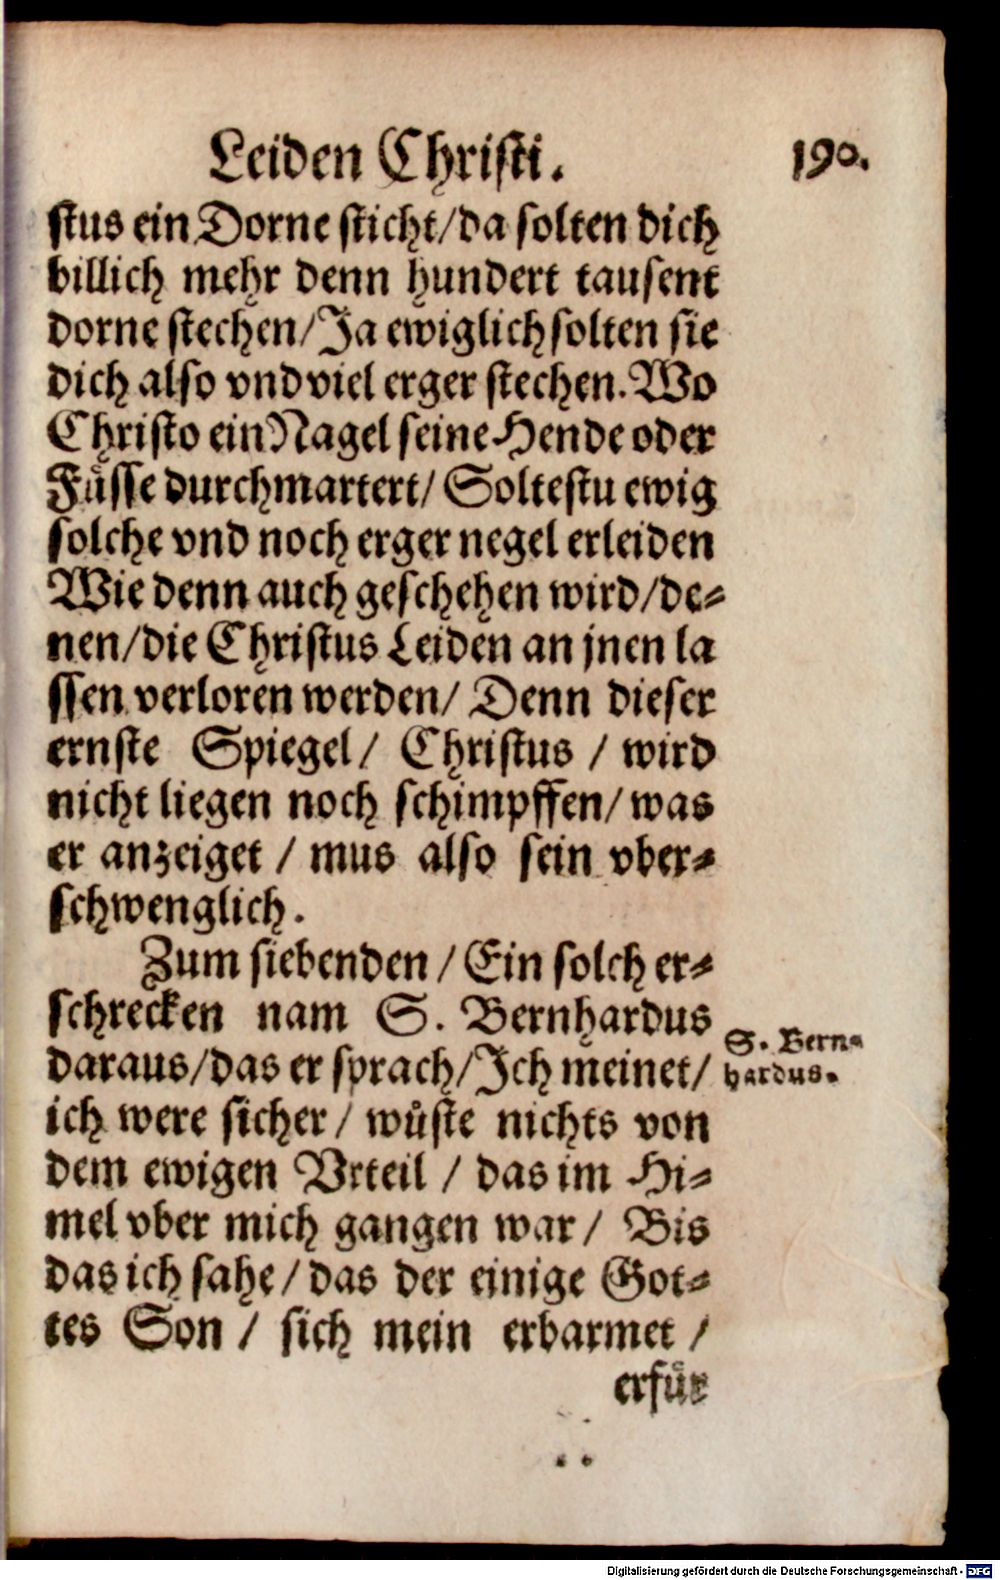 Leiden Christi. 190.
stus ein Dorne sticht/da solten dich
billich mehr denn hundert tausent
dorne stechen/Ja ewiglich solten sie
dich also vnd viel erger stechen. Wo
Christo ein Nagel seine Hende oder
Fuͤsse durchmartert/ Soltestu ewig
solche vnd noch erger negel erleiden
Wie denn auch geschehen wird/de-
nen/die Christus Leiden an jnen la
ssen verloren werden/ Denn dieser
ernste Spiegel/ Christus / wird
nicht liegen noch schimpffen/ was
er anzeiget / mus also sein vber-
schwenglich.
Zum siebenden / Ein solch er-
schrecken nam S. Bernhardus
daraus/das er sprach/Ich meinet/
ich were sicher / wuͤste nichts von
dem ewigen Vrteil / das im Hi-
mel vber mich gangen war/ Bis
das ich sahe / das der einige Got-
tes Son / sich mein erbarmet /
erfuͤr
S. Bern-
hardus.
Digitalisierung gefördert durch die Deutsche Forschungsgemeinschaft - DFG